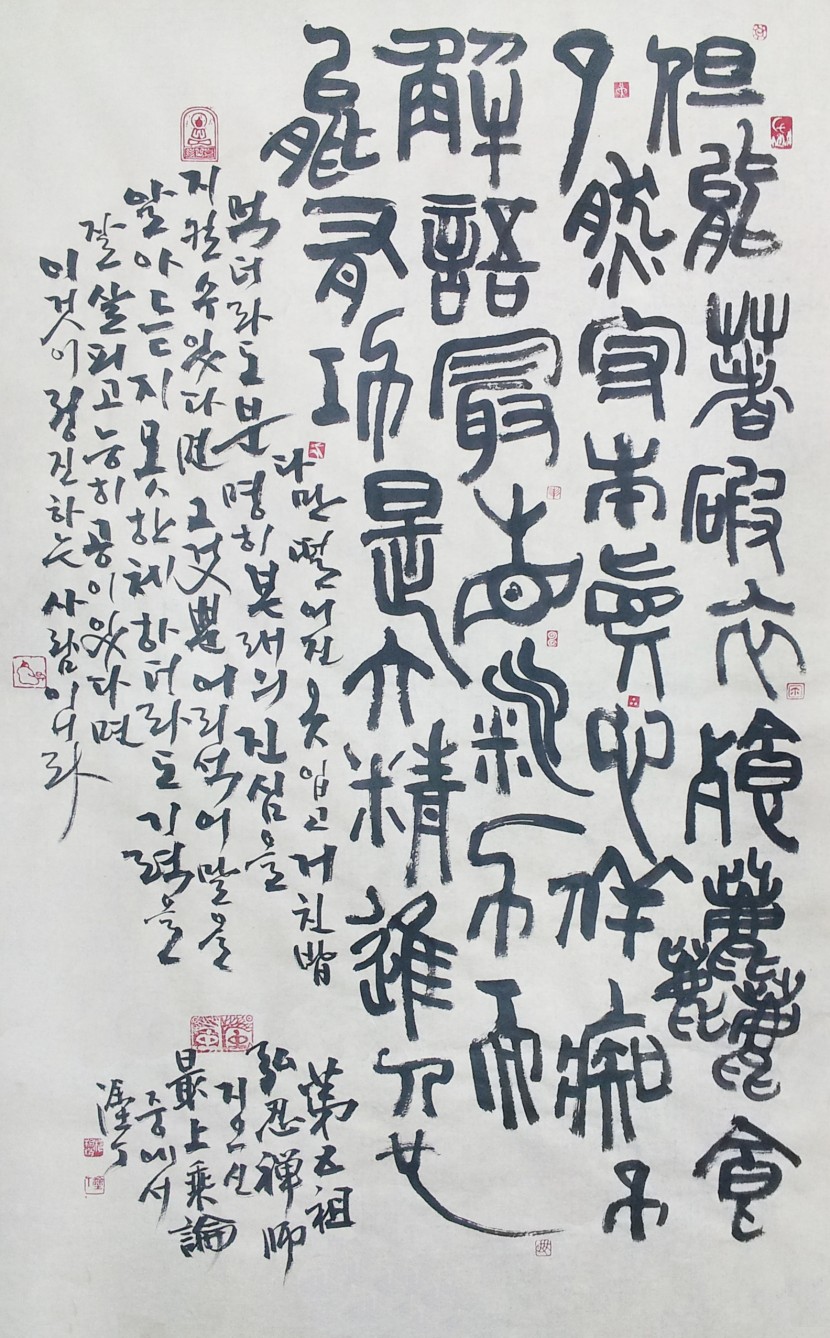 但能著破衣飡麤食
了然守本眞心佯痴不
解語最省氣力而
能有功是大精進人也
다만 떨어진 옷 입고 거친 밥
먹더라도 분명히 본래의 진심을
지킬 수 있다면 그것뿐 어리석어 말을
알아듣지 못한체 하더라도 기력을
잘 살피고 능히 공이 있다면
이것이 정진하는 사람이니라
第五祖
弘忍禅师
지으신
最上乘論
중에서